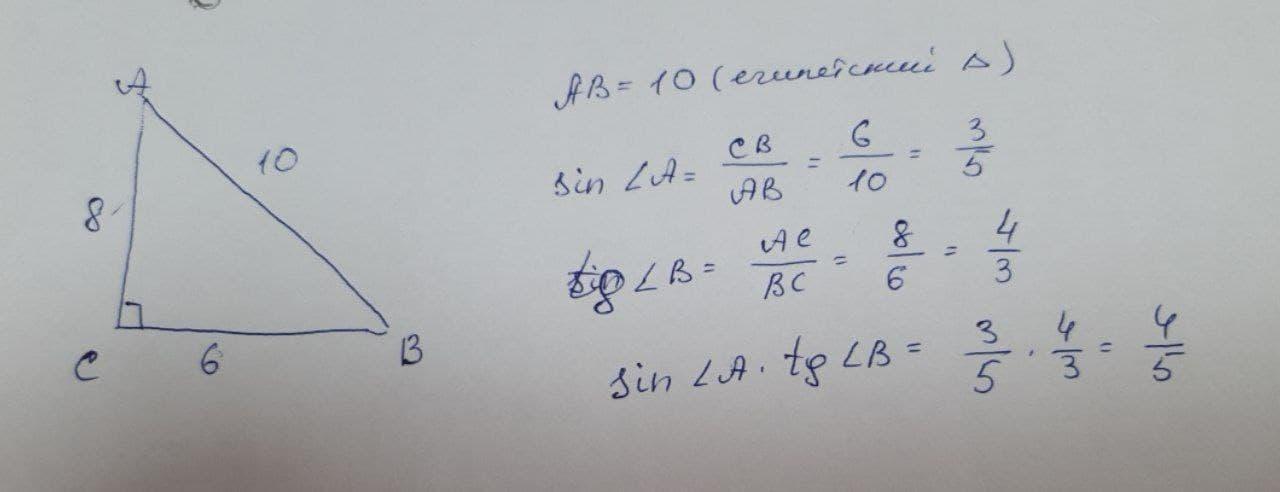 A
10
8
C
6
B
AB = 10 (египетский Δ)
sin ∠A = CB/AB = 6/10 = 3/5
tg ∠B = AC/BC = 8/6 = 4/3
sin ∠A · tg ∠B = 3/5 · 4/3 = 4/5